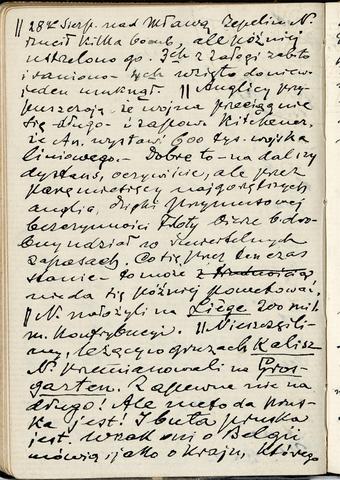 || 28 Sierp. nad Mławą Zepelin N.
rzucił kilka bomb, ale później
ustrzelono go. Ich z załogi zabito
i raniono – tych wzięto do niewoli
jeden umknął. || Anglicy przy-
puszczają – że wojna przeciągnie
się długo – i zapow. Kitchener,
że An. wystawi 600 tys. wojska
liniowego. – Dobre to – na dalszy
dystans, oczywiście, ale przez
parę miesięcy najgorętszych
anglia, dzięki przymusowej
bezczynności floty bierze b. dro-
bny udział w śmiertelnych
zapasach. Co się przez ten czas
stanie – to może
nie da się później powetować.
|| N. nałożyli na Liège 200 mil.
m. kontrybucji. || Nieszczęśli-
wy, leżący w gruzach Kalisz
N. przemianowali na Gros-
garten. Zapewne nie na
długo! Ale metoda prus-
ka jest! I buta pruska
jest. Wszak oni o Belgii
mówią, jako o kraju, którego